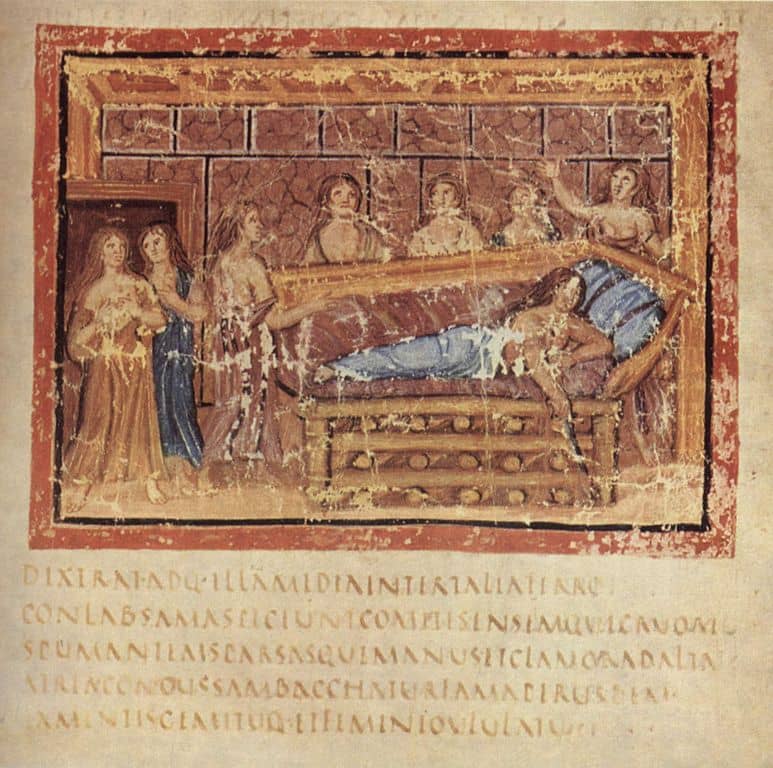 DIXERAT·ADQ·ILLAMMEDIAINTERTALIAFERRO
CONLABSAMASPICIUNTCOMITESENSEMQUECRUOREM
SPUMANTEMSPARSASQUEMANUSITCLAMORADALTA
ATRIACONCUSSAMBACCHATURFAMAPERURBEM
LAMENTISGEMITUQ·ETFEMINEOULULATU